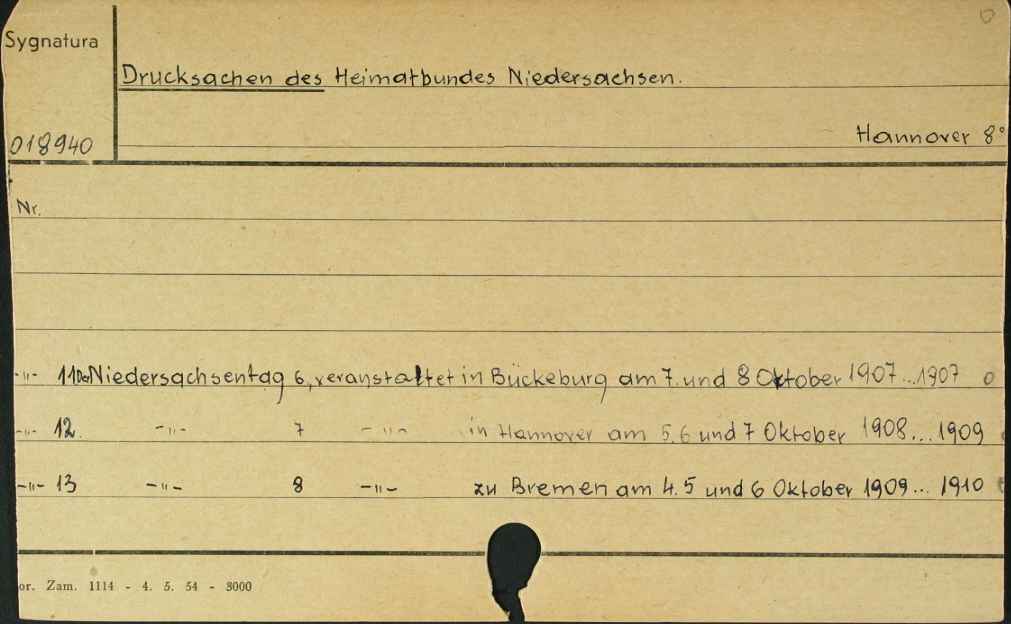 Sygnatura
Drucksachen des Heimatbundes Niedersachsen.
018940
Hannover 8°
Nr.
-"- 11 Der Niedersachsentag 6, veranstaltet in Bückeburg am 7. und 8 Oktober 1907...1907
-"- 12. -"- 7 -"- in Hannover am 5. 6 und 7 Oktober 1908...1909
-"- 13 -"- 8 -"- zu Bremen am 4. 5 und 6 Oktober 1909...1910
or. Zam. 1114 - 4. 5. 54 - 3000